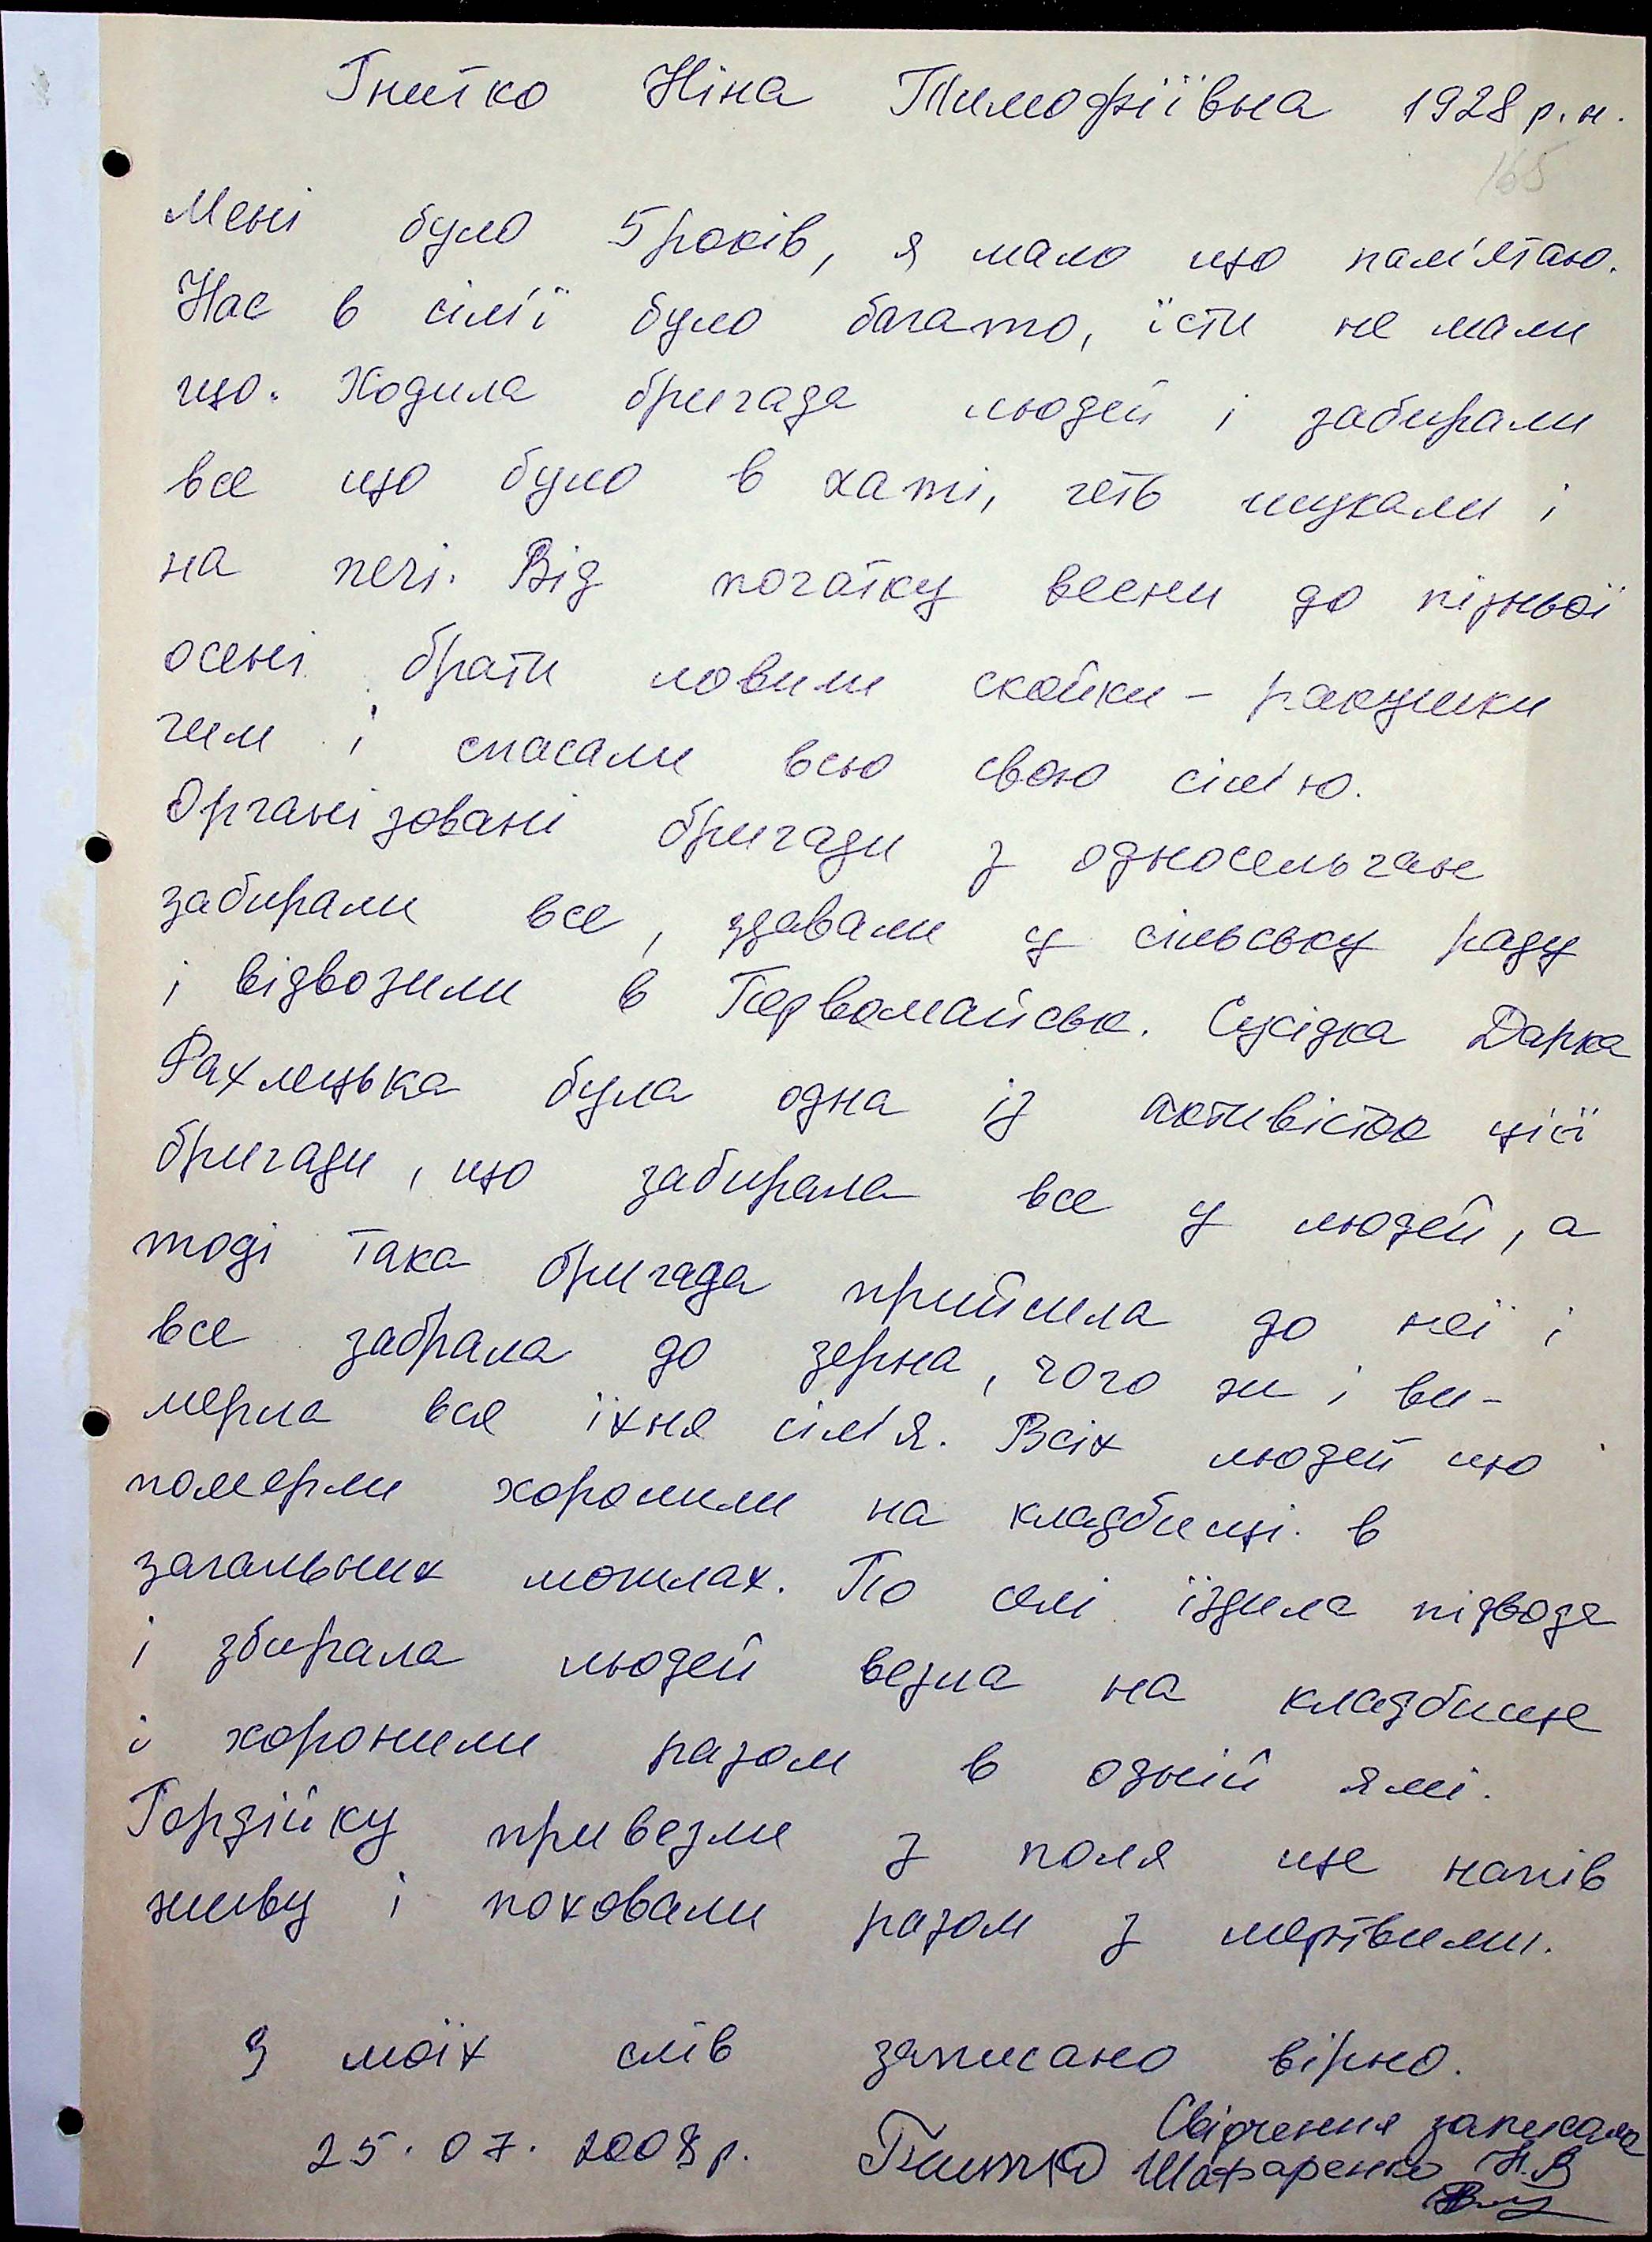 Гнитко Ніна Тимофіївна 1928 р.н.
165
Мені було 5 років, я мало що пам'ятаю.
Нас в сім'ї було багато, їсти не мали
що. Ходила бригада людей і забирали
все що було в хаті, геть шукали і
на печі. Від початку весни до пізньої
осені брати ловили скойки - ракушки
чим і спасали всю свою сім'ю.
Організовані бригади з односельчан
забирали все, здавали у сільську раду
і відвозили в Первомайськ. Сусідка Дарка
Рахлецька була одна із активісток цієї
бригади, що забирала все у людей, а
тоді така бригада прийшла до неї і
все забрала до зерна, чого ж і ви-
мерла вся їхня сім'я. Всіх людей що
померли хоронили на кладбищі в
загальних могилах. По селі їздила підвода
і збирала людей везла на кладбище
і хоронили разом в одній ямі.
Гордійку привезли з поля ще напів
живу і поховали разом з мертвими.
З моїх слів записано вірно.
Свідчення записала
25.07.2008 р. Гнитко Шафаренко Н.В